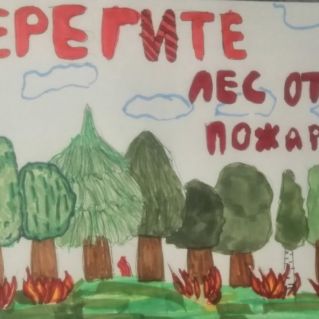 ЕРЕГИТЕ
ЛЕС ОТ
ПОЖАР